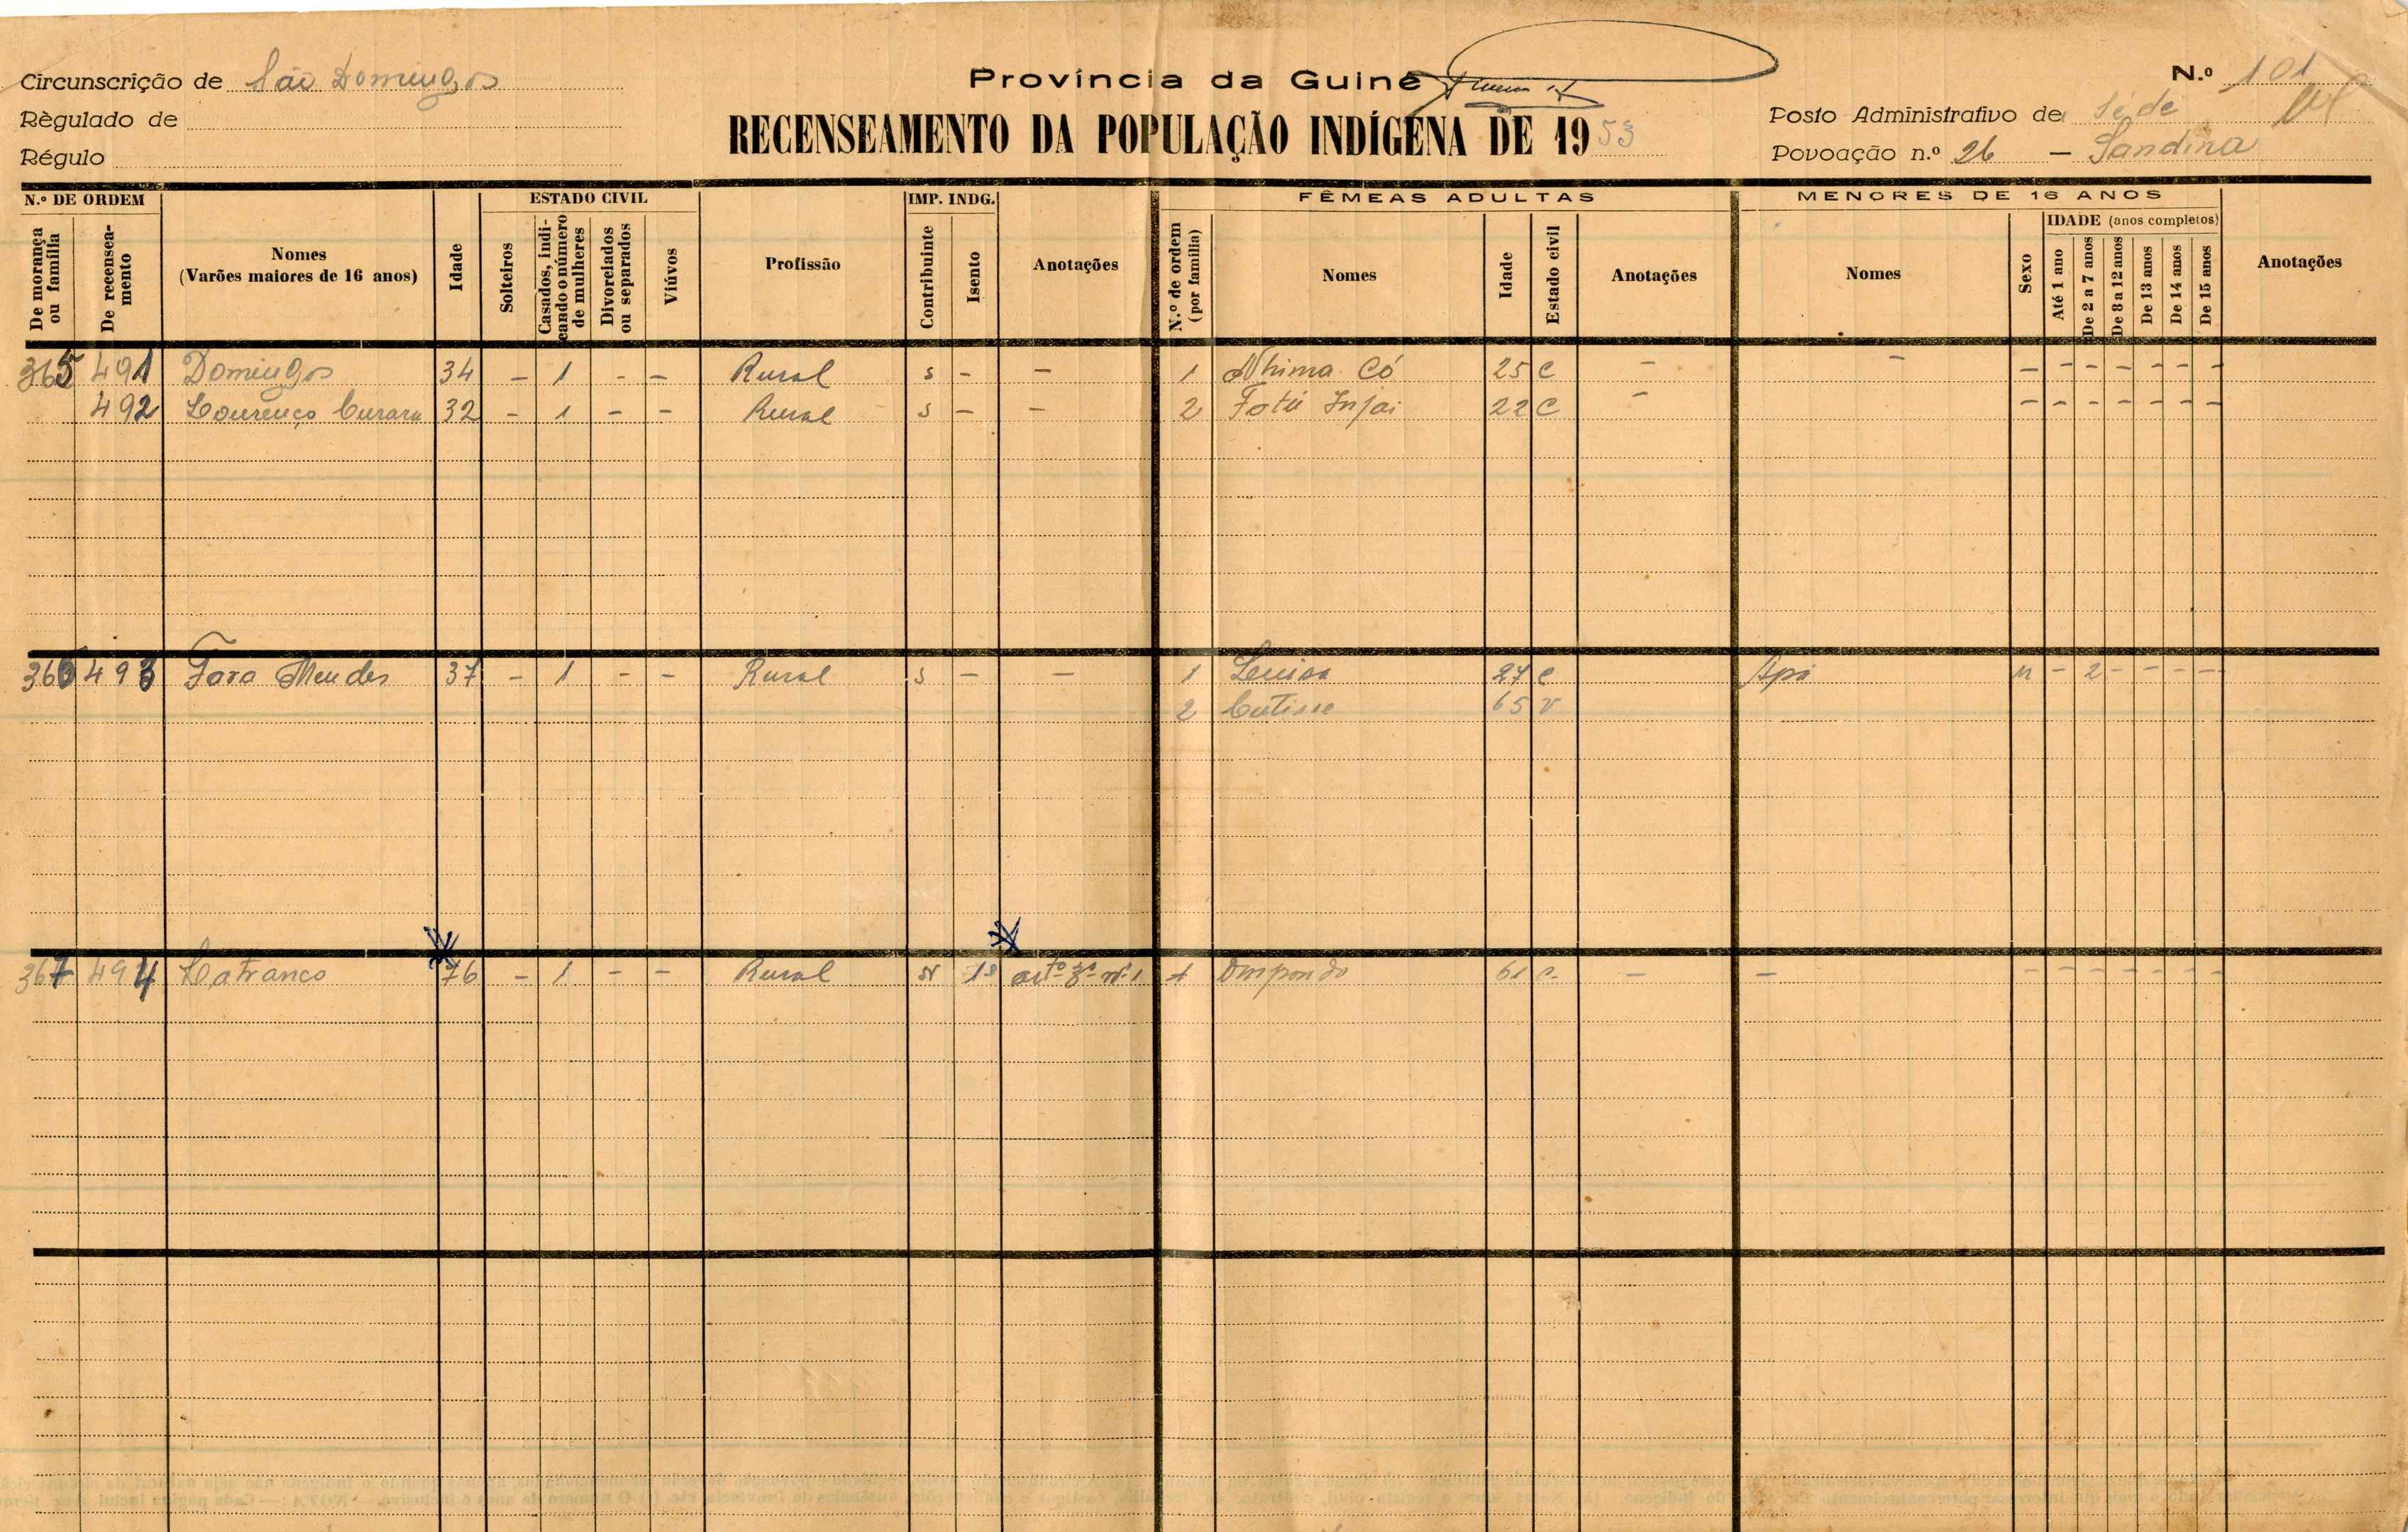 Circunscrição de São Domingos
Règulado de
Régulo
Província da Guiné
RECENSEAMENTO DA POPULAÇÃO INDÍGENA DE 1953
N.º 101
Posto Administrativo de Séde
Povoação n.º 26 — Sandina
N.º DE ORDEM
De morança ou família
De recensea-mento
Nomes
(Varões maiores de 16 anos)
Idade
ESTADO CIVIL
Solteiros
Casados, indi-cando o número de mulheres
Divorciados ou separados
Viúvos
Profissão
IMP. INDG.
Contribuinte
Isento
Anotações
FÊMEAS ADULTAS
N.º de ordem (por família)
Nomes
Idade
Estado civil
Anotações
MENORES DE 16 ANOS
Nomes
Sexo
IDADE (anos completos)
Até 1 ano
De 2 a 7 anos
De 8 a 12 anos
De 13 anos
De 14 anos
De 15 anos
Anotações
365 491 Domingos 34 – 1 – – Rural s – – 1 Nhima Có 25 C – – – – – – – – –
492 Lourenço 32 – 1 – – Rural s – – 2 Fotú Injai 22 C – – – – – – – –
366 493 Fara Mendes 37 – 1 – – Rural s – – 1 Luisa 27 C Apá M – 2 – – – –
2 65 V
367 494 Lafranco 76 – 1 – – Rural N 1º artº 3º nº 1 1 61 C – – – – – – – – –